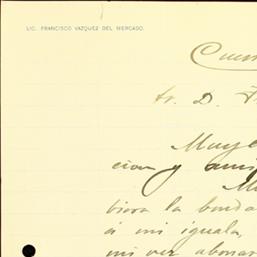 LIC. FRANCISCO VAZQUEZ DEL MERCADO.
Cuer
Sr. D. F
Muy e
cion y ami
M
biera la bonda
á mi iguala,
mi ver abonar